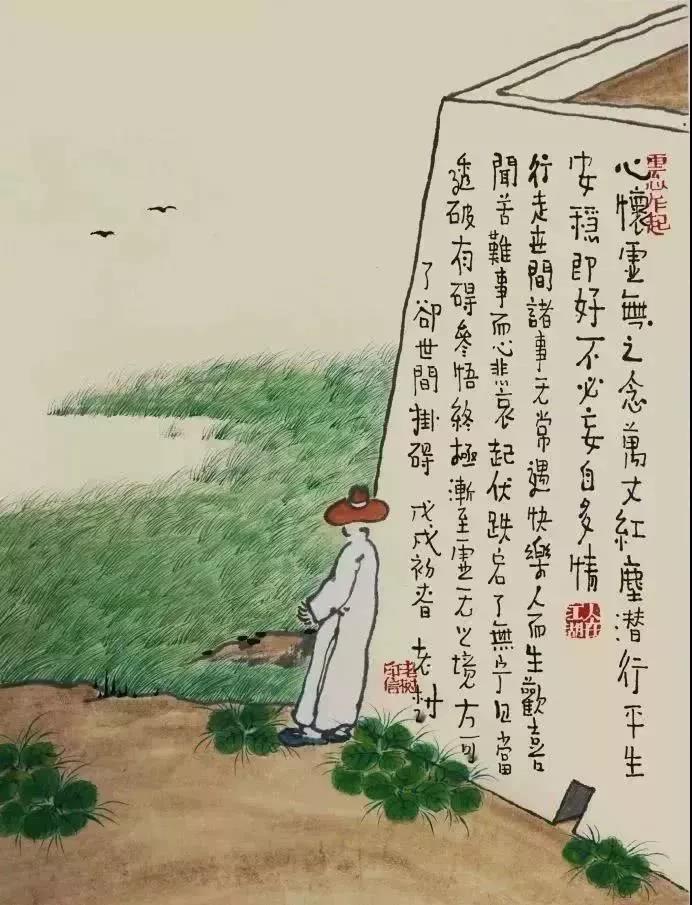 心懷虛無之念萬丈紅塵潜行平生
安穩即好不必妄自多情
人在江湖
行走世間諸事无常遇快樂人而生歡喜
聞苦難事而心悲哀起伏跌宕了無宁日當
透破有碍參悟終極漸至虛无之境方可
了卻世間掛碍 戊戌初春 老树
老树印信